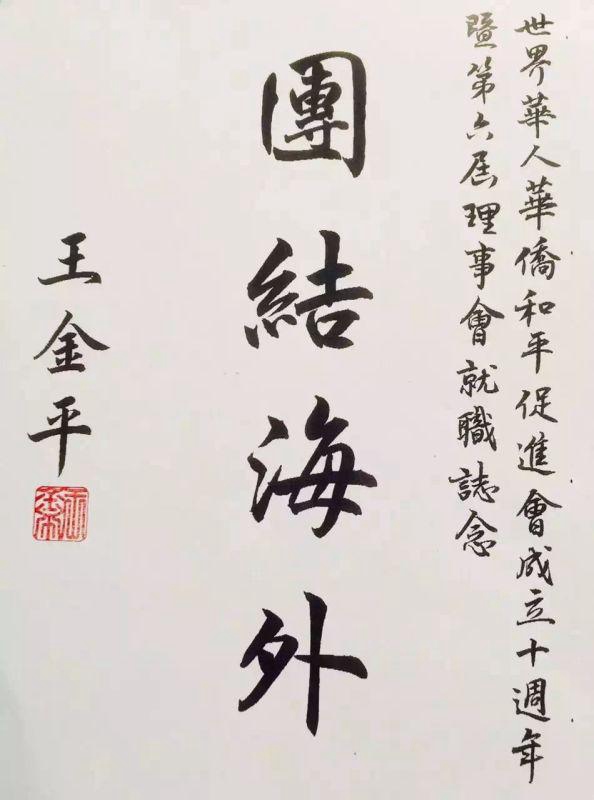 世界華人華僑和平促進會成立十週年
暨第六屆理事會就職誌念
團結海外
王金平